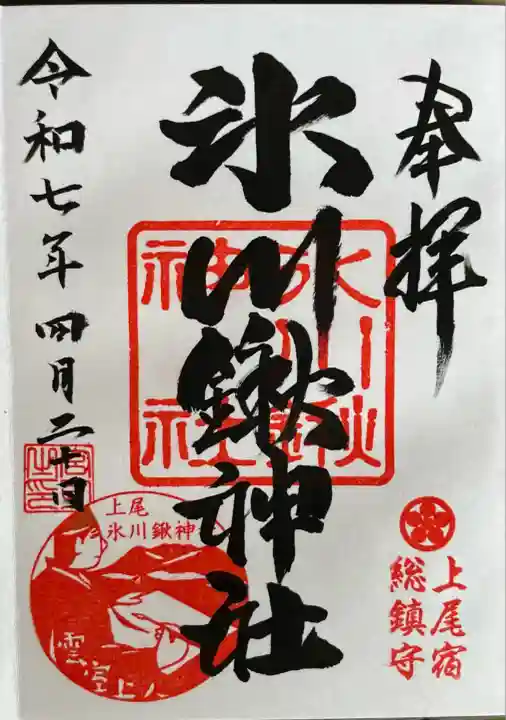 奉拝
氷川鍬神社
氷川鍬
神社
上尾宿
総鎮守
令和七年四月二十日
上尾
氷川鍬神
雲室上人